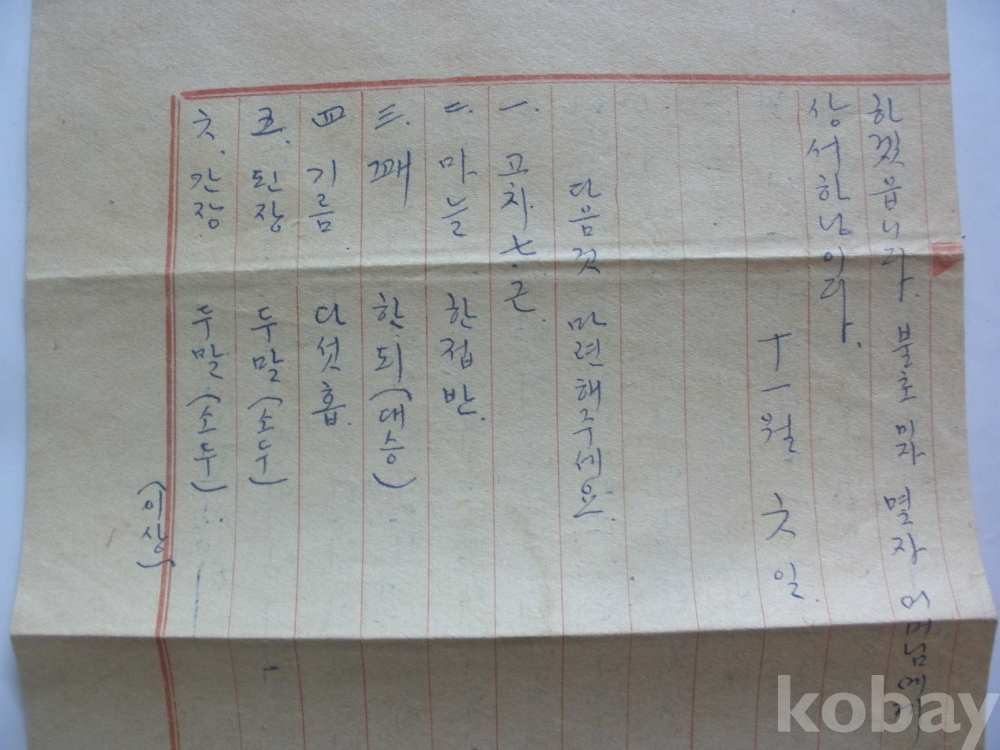 하겠읍니다. 불초 미자 멸자 어머님에게
상서하나이다.
十一月 六 일.
다음것 마련해주세요.
一. 고차 七.근.
二. 마늘 한접반.
三. 깨 한되(대승)
四 기름. 다섯홉.
五. 된장 두말(소두)
六. 간장 두말(소두).
(이상)
kobay